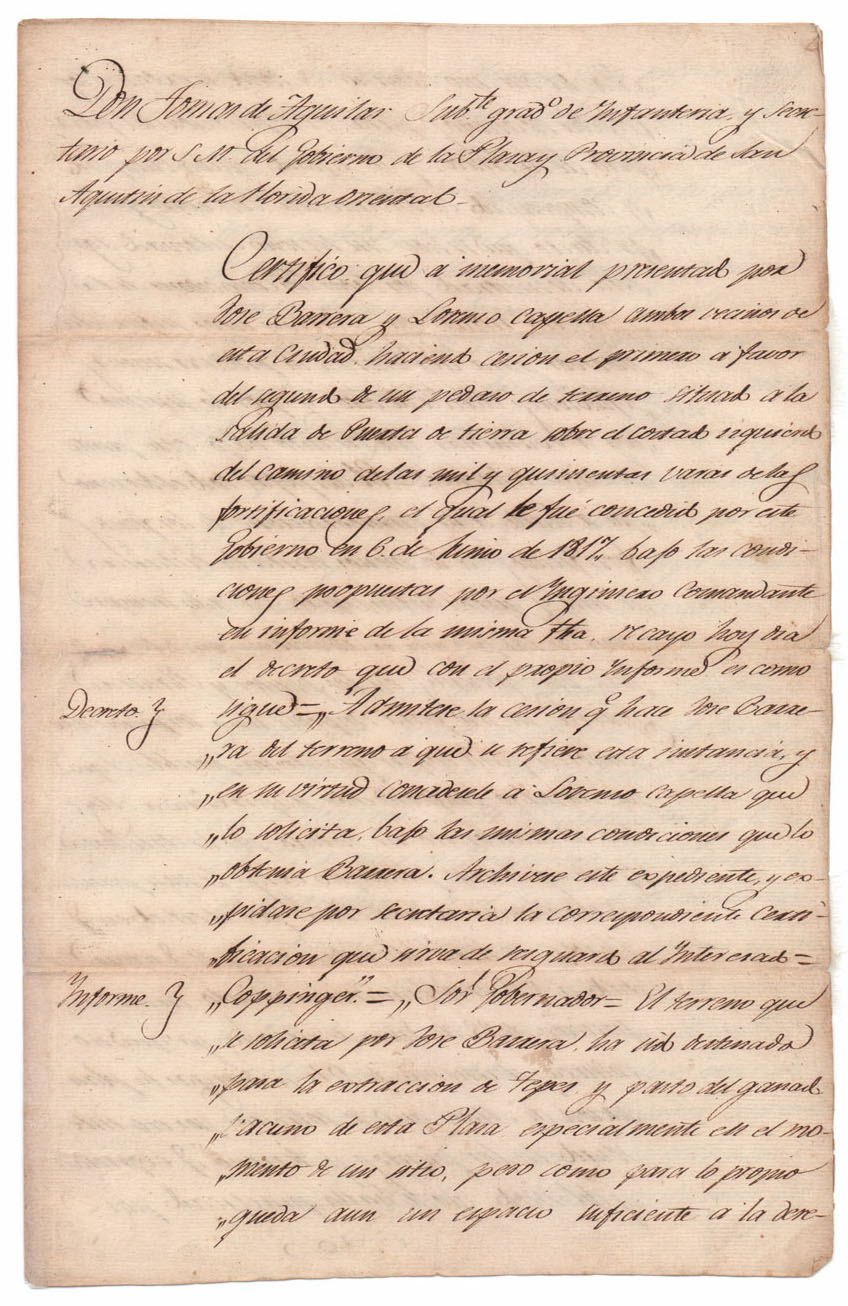 Don Tomas de Aguilar Sub.te grad.o de Infanteria, y Secre-
tario por S. M. del Gobierno de la Plaza y Provincia de San
Agustin de la Florida Oriental_
Certifico que a memorial presentado por
Jose Barrera y Lorenzo Capella ambos vecinos de
esta Ciudad, haciendo cesion el primero a favor
del segundo de un pedazo de terreno situado a la
salida de Puerta de tierra sobre el costado izquierdo
del camino de las mil y quinientas varas de las
fortificaciones, el qual le fué concedido por este
Gobierno en 6. de Junio de 1817,, bajo las condi-
ciones propuestas por el Ingeniero Comandante
en informe de la misma fha. recayo hoy dia
el decreto que con el propio Informe es como
Decreto. sigue=,, Admitese la cesion q.e hace Jose Barre-
,,ra del terreno a que se refiere esta instancia, y
,,en su virtud concedesele a Lorenzo Capella que
,,lo solicita, bajo las mismas condiciones que lo
,,obtenia Barrera. Archivese este expediente, y ex-
,,pidase por secretaria la correspondiente Certi-
,,ficacion que sirva de resguardo al Interesado=
Informe. ,,Coppinger."= ,,Sor. Gobernador= El terreno que
,,se solicita por Jose Barrera, ha sido destinado
,,para la extraccion de tepes y pasto del ganado
,,vacuno de esta Plaza especialmente en el mo-
,,mento de un sitio, pero como para lo propio
,,queda aun un espacio suficiente a la dere-